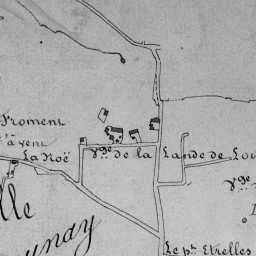 Froment
à vent
La Noë
Vge de la Lande de Lou
Vge
lle
unay
Le pt Etrelles